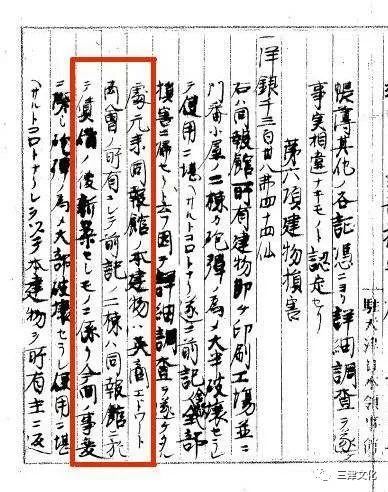 駐天津日本領事館
帳簿其他ノ各証憑ニヨリ詳細調査ヲ遂ケ
事実相違ナキモノト認定セリ
第六項建物損害
一洋銀千三百廿八弗四十四仙
右ハ同報館所有建物即チ印刷工場並ニ
門番小屋二棟カ砲弾ノ為メ大半破壊セラレ
テ使用ニ堪サル遂ニ前記ノ全部
損害ニ帰セシト云フ因テ詳細調査ヲ遂ケタル
處元来同報館ノ本建物ハ英商エドワート
商會ノ所有ニシテ前記ノ二棟ハ同報館ニ於
テ賃借ノ後新築セシモノニ係リ今回ノ事変
ニ際シ砲弾ノ為メ大部破壊セラレ使用ニ堪
サルトコロトナレルヲ以テ本建物ヲ所有主ニ返
三津文化